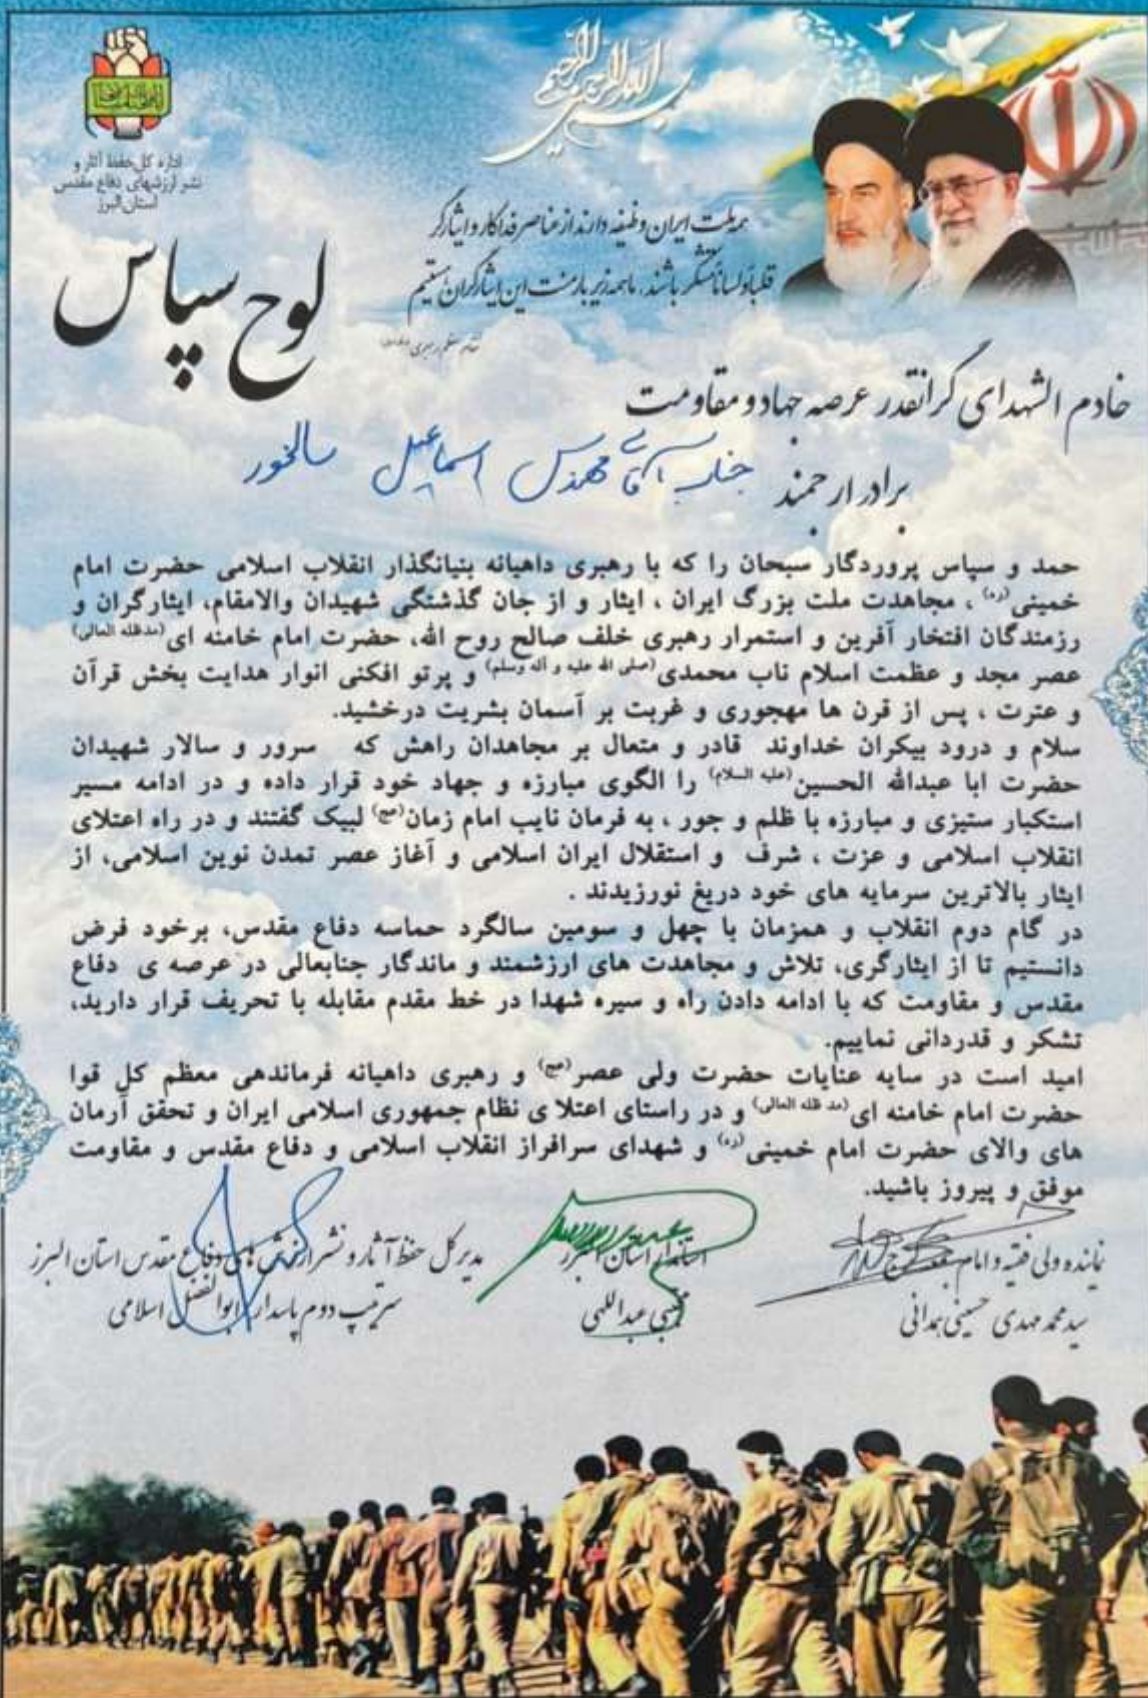 بسم الله الرحمن الرحیم
اداره کل حفظ آثار و
نشر ارزشهای دفاع مقدس
استان البرز
همه ملت ایران وظیفه دارند از عناصر فداکار و ایثارگر
قلباً و لساناً متشکر باشند. ما همه زیر بار منت این ایثارگران هستیم
مقام معظم رهبری
لوح سپاس
خادم الشهدای گرانقدر عرصه جهاد و مقاومت
برادر ارجمند جناب آقای مهندس اسماعیل سالخور
حمد و سپاس پروردگار سبحان را که با رهبری داهیانه بنیانگذار انقلاب اسلامی حضرت امام
خمینی(ره) ، مجاهدت ملت بزرگ ایران ، ایثار و از جان گذشتگی شهیدان والامقام، ایثارگران و
رزمندگان افتخار آفرین و استمرار رهبری خلف صالح روح الله، حضرت امام خامنه ای(مدظله العالی)
عصر مجد و عظمت اسلام ناب محمدی(صلی الله علیه و آله وسلم) و پرتو افکنی انوار هدایت بخش قرآن
و عترت ، پس از قرن ها مهجوری و غربت بر آسمان بشریت درخشید.
سلام و درود بیکران خداوند قادر و متعال بر مجاهدان راهش که سرور و سالار شهیدان
حضرت ابا عبدالله الحسین(علیه السلام) را الگوی مبارزه و جهاد خود قرار داده و در ادامه مسیر
استکبار ستیزی و مبارزه با ظلم و جور ، به فرمان نایب امام زمان(عج) لبیک گفتند و در راه اعتلای
انقلاب اسلامی و عزت ، شرف و استقلال ایران اسلامی و آغاز عصر تمدن نوین اسلامی، از
ایثار بالاترین سرمایه های خود دریغ نورزیدند .
در گام دوم انقلاب و همزمان با چهل و سومین سالگرد حماسه دفاع مقدس، برخود فرض
دانستیم تا از ایثارگری، تلاش و مجاهدت های ارزشمند و ماندگار جنابعالی در عرصه ی دفاع
مقدس و مقاومت که با ادامه دادن راه و سیره شهدا در خط مقدم مقابله با تحریف قرار دارید،
تشکر و قدردانی نماییم.
امید است در سایه عنایات حضرت ولی عصر(عج) و رهبری داهیانه فرماندهی معظم کل قوا
حضرت امام خامنه ای(مد ظله العالی) و در راستای اعتلا ی نظام جمهوری اسلامی ایران و تحقق آرمان
های والای حضرت امام خمینی(ره) و شهدای سرافراز انقلاب اسلامی و دفاع مقدس و مقاومت
موفق و پیروز باشید.
نماینده ولی فقیه و امام جمعه کرج
سید محمد مهدی حسینی همدانی
استاندار استان البرز
مجتبی عبداللهی
مدیر کل حفظ آثار و نشر ارزش های دفاع مقدس استان البرز
سرتیپ دوم پاسدار ابوالفضل اسلامی